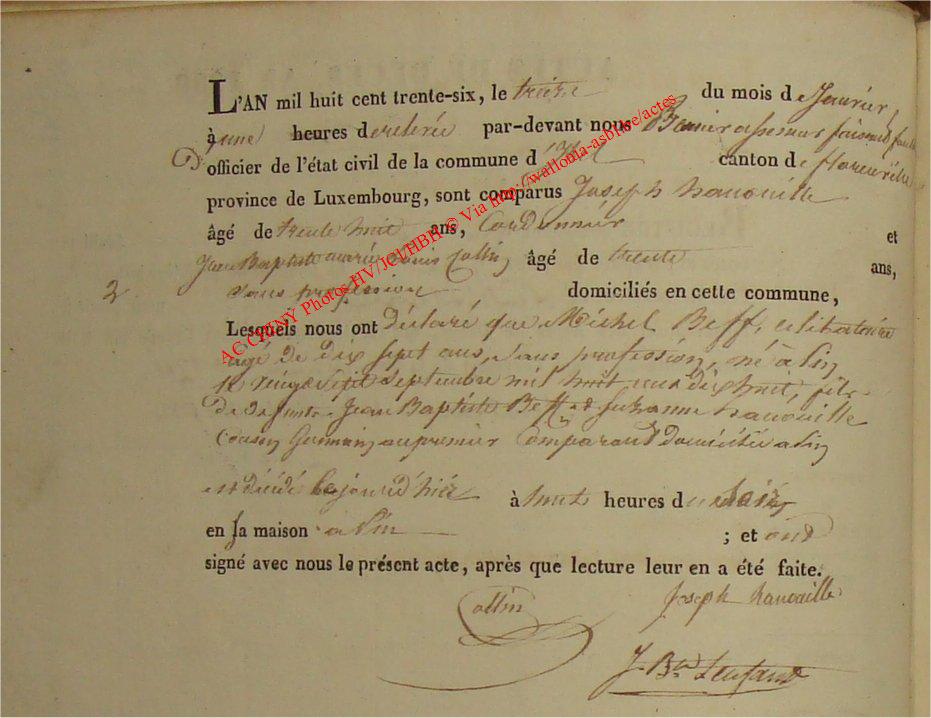 L'AN mil huit cent trente-six, le treize du mois de Janvier,
à une heures de relevée par-devant nous assesseur faisant
D'officier de l'état civil de la commune d' canton de florenville
province de Luxembourg, sont comparus Joseph hanouille
âgé de trente huit ans, Cordonnier et
Jean Baptiste Louis Collin âgé de trente ans,
2 Sans profession domiciliés en cette commune,
Lesquels nous ont déclaré que Michel Beff, celibataire
age de dix sept ans, sans profession, né à Pin
le vingt Septembre mil huit cent dix huit, fils
de defunts Jean Baptiste Beff et Suzanne hanouille
Cousin Germain au premier Comparant domicilié a Pin
est décédé le jour d'hier à huit heures du soir
en sa maison a Pin ; et ont
signé avec nous le présent acte, après que lecture leur en a été faite.
Collin Joseph hanouille
J. Bte Lenfant
AC CHINY Photos HV/JCLHBH © Via http://wallonia-asbl.be/actes